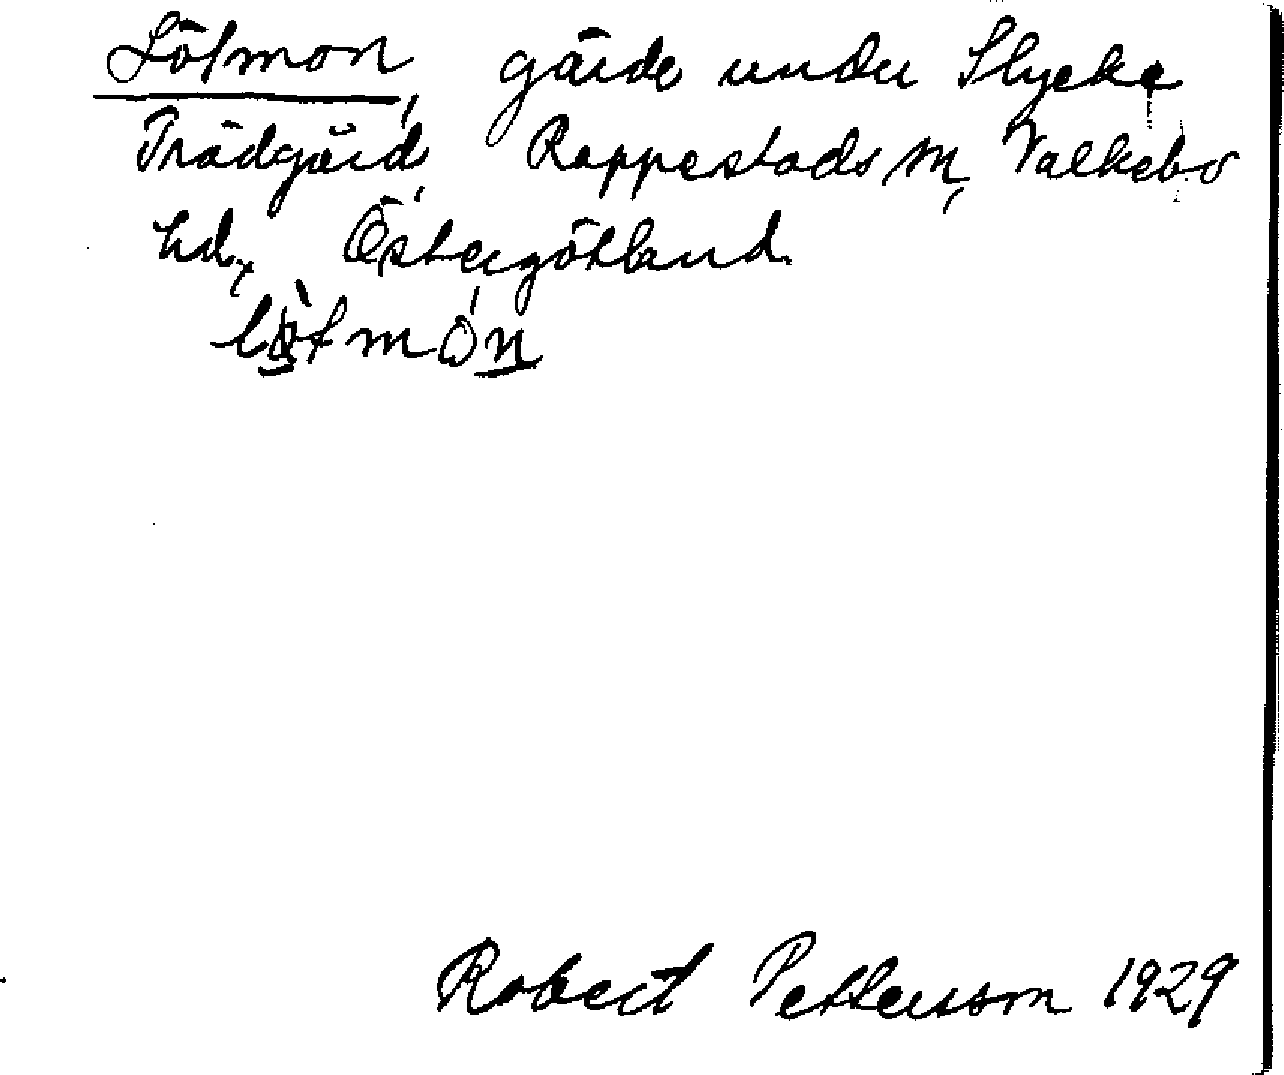 Löfmon, gärde under Slycke
Trädgård, Rappestads sn, Valkebo
hd, Östergötland.
lö̀fmón
Robert Pettersson 1929